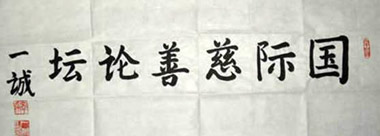 国际慈善论坛
一誠